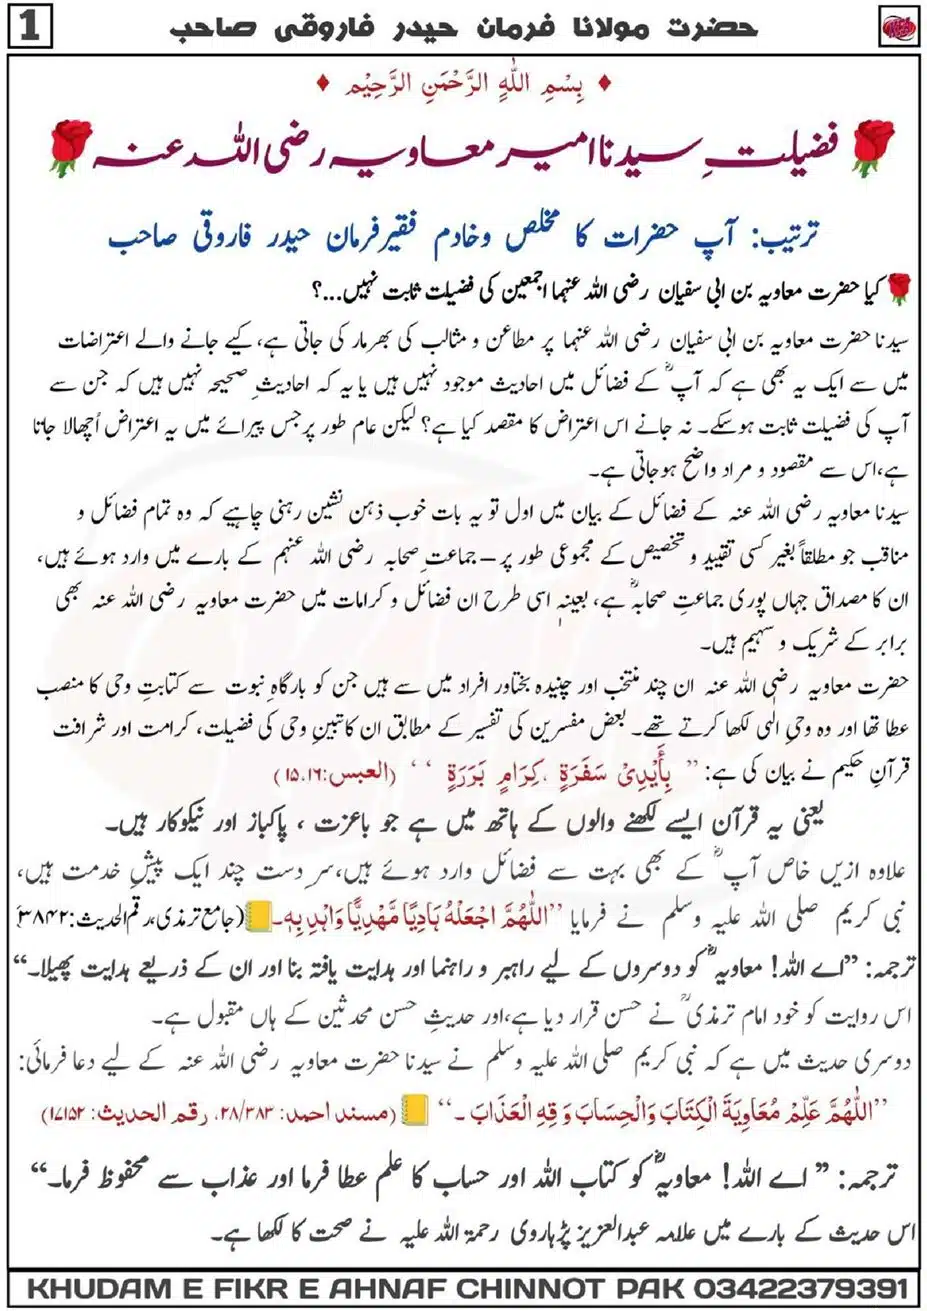 1
حضرت مولانا فرمان حیدر فاروقی صاحب
بِسْمِ اللهِ الرَّحْمَنِ الرَّحِيْمِ
فضیلتِ سیدنا امیر معاویہ رضی اللہ عنہ
ترتیب: آپ حضرات کا مخلص وخادم فقیر فرمان حیدر فاروقی صاحب
کیا حضرت معاویہ بن ابی سفیان رضی اللہ عنہما اجمعین کی فضیلت ثابت نہیں...؟
سیدنا حضرت معاویہ بن ابی سفیان رضی اللہ عنہما پر مطاعن و مثالب کی بھرمار کی جاتی ہے، کیے جانے والے اعتراضات
میں سے ایک یہ بھی ہے کہ آپؓ کے فضائل میں احادیث موجود نہیں ہیں یا یہ کہ احادیثِ صحیحہ نہیں ہیں کہ جن سے
آپ کی فضیلت ثابت ہوسکے۔ نہ جانے اس اعتراض کا مقصد کیا ہے؟ لیکن عام طور پر جس پیرائے میں یہ اعتراض اُچھالا جاتا
ہے، اس سے مقصود و مراد واضح ہوجاتی ہے۔
سیدنا معاویہ رضی اللہ عنہ کے فضائل کے بیان میں اول تو یہ بات خوب ذہن نشین رہنی چاہیے کہ وہ تمام فضائل و
مناقب جو مطلقاً بغیر کسی تقیید و تخصیص کے مجموعی طور پر – جماعتِ صحابہ رضی اللہ عنہم کے بارے میں وارد ہوئے ہیں،
ان کا مصداق جہاں پوری جماعتِ صحابہؓ ہے، بعینہٖ اسی طرح ان فضائل و کرامات میں حضرت معاویہ رضی اللہ عنہ بھی
برابر کے شریک و سہیم ہیں۔
حضرت معاویہ رضی اللہ عنہ ان چند منتخب اور چنیدہ بختاور افراد میں سے ہیں جن کو بارگاہِ نبوت سے کتابتِ وحی کا منصب
عطا تھا اور وہ وحیِ الٰہی لکھا کرتے تھے۔ بعض مفسرین کی تفسیر کے مطابق ان کاتبینِ وحی کی فضیلت، کرامت اور شرافت
قرآنِ حکیم نے بیان کی ہے: ’’ بِأَيْدِيْ سَفَرَةٍ ،كِرَامٍ بَرَرَةٍ ‘‘ (العبس:۱۵،۱۶)
یعنی یہ قرآن ایسے لکھنے والوں کے ہاتھ میں ہے جو باعزت ، پاکباز اور نیکوکار ہیں۔
علاوہ ازیں خاص آپؓ کے بھی بہت سے فضائل وارد ہوئے ہیں، سرِ دست چند ایک پیشِ خدمت ہیں،
نبی کریم صلی اللہ علیہ وسلم نے فرمایا ’’اللّٰهُمَّ اجْعَلْهُ هَادِيًا مَّهْدِيًّا وَاهْدِ بِهٖ۔ (جامع ترمذی، رقم الحدیث:۳۸۴۲)
ترجمہ: ’’اے اللہ! معاویہؓ کو دوسروں کے لیے راہبر و راہنما اور ہدایت یافتہ بنا اور ان کے ذریعے ہدایت پھیلا۔‘‘
اس روایت کو خود امام ترمذیؒ نے حسن قرار دیا ہے، اور حدیثِ حسن محدثین کے ہاں مقبول ہے۔
دوسری حدیث میں ہے کہ نبی کریم صلی اللہ علیہ وسلم نے سیدنا حضرت معاویہ رضی اللہ عنہ کے لیے دعا فرمائی:
’’اللّٰهُمَّ عَلِّمْ مُعَاوِيَةَ الْكِتَابَ وَالْحِسَابَ وَقِهِ الْعَذَابَ ۔‘‘ (مسند احمد: ۲۸/۳۸۳، رقم الحدیث: ۱۷۱۵۲)
ترجمہ: ’’ اے اللہ! معاویہؓ کو کتاب اللہ اور حساب کا علم عطا فرما اور عذاب سے محفوظ فرما۔‘‘
اس حدیث کے بارے میں علامہ عبدالعزیز پڑہاروی رحمۃ اللہ علیہ نے صحت کا لکھا ہے۔
KHUDAM E FIKR E AHNAF CHINNOT PAK 03422379391